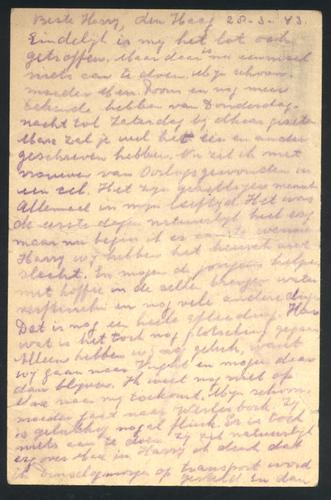 Beste Harry, Den Haag 28-3-43.
Eindelijk is mij het lot ook
getroffen. Maar daar is nu eenmaal
niets aan te doen. Mijn schoon-
moeder Mem. Room en nog meer
bekende hebben van Donderdag-
nacht tot Zaterdag bij elkaar gezeten
Max zal je wel het een en ander
geschreven hebben. Nu zit ik met
vrouwen van Oorlogsgewonden in
een cel. Het zijn
Allemaal in mijn leeftijd. Het was
de eerste dagen natuurlijk heel erg
maar nu begin ik er aan te wennen
Harry wij hebben het heusch niet
slecht. En mogen de jongens helpen
met koffie in de cellen brengen water
verfrisschen en nog vele andere dingen
Dat is nog een heele afleiding. Harry
wat is het toch nog plotseling gegaan
Alleen hebben wij nog geluk, want
wij gaan naar Vught en mogen daar
dan blijven. Ik weet nog niet op
hoe naar mij toekomt. Mijn schoon-
moeder gaat naar Westerbork. Zij
is gelukkig nogal flink. Er is toch
niets aan te doen. Zij zit natuurlijk
erg over Max in Harry ik denk dat
ik Dinsdagmorgen op transport word
gesteld. En dan